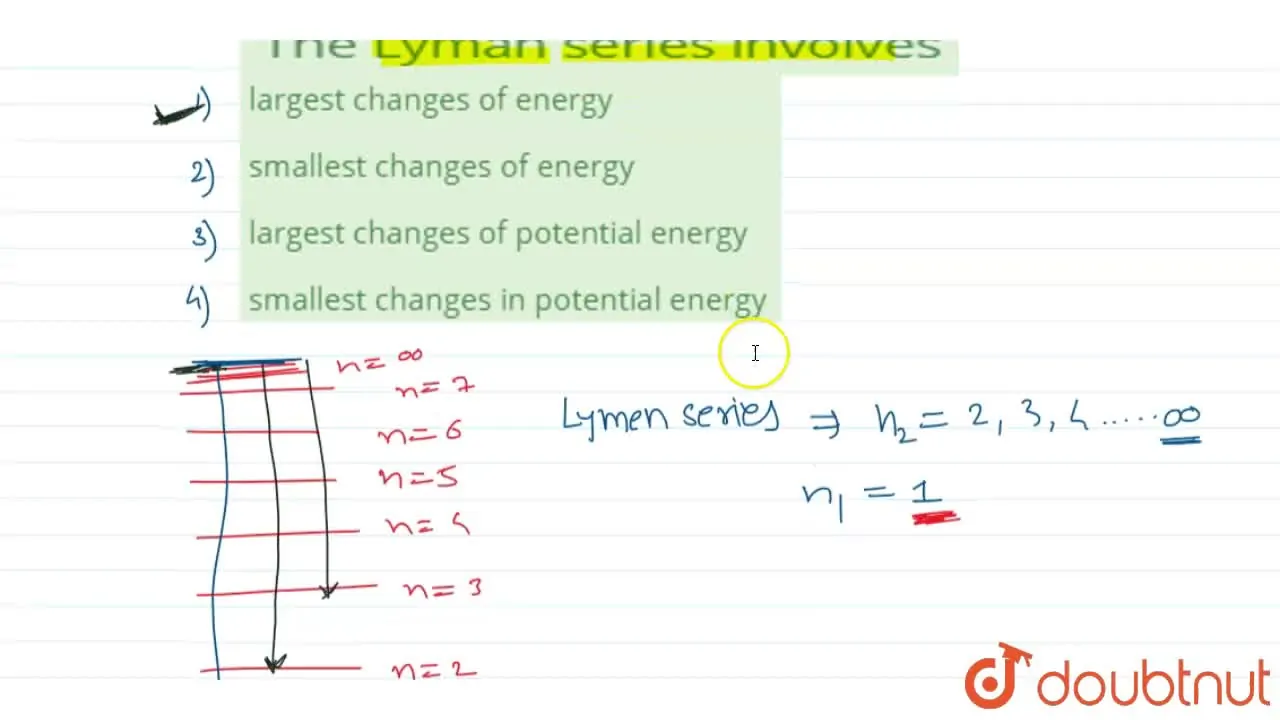 The Lyman series involves
1) largest changes of energy
2) smallest changes of energy
3) largest changes of potential energy
4) smallest changes in potential energy
n = ∞
n = 7
n = 6
n = 5
n = 4
n = 3
n = 2
Lymen series ⇒ n₂ = 2, 3, 4 ..... ∞
n₁ = 1
doubtnut